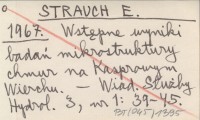 STRAUCH E.
1967. Wstępne wyniki
badań mikrostruktury
chmur na Kasprowym
Wierchu. — Wiad. Służby
Hydrol. 3, nr 1: 39-45.
BY/045/1395